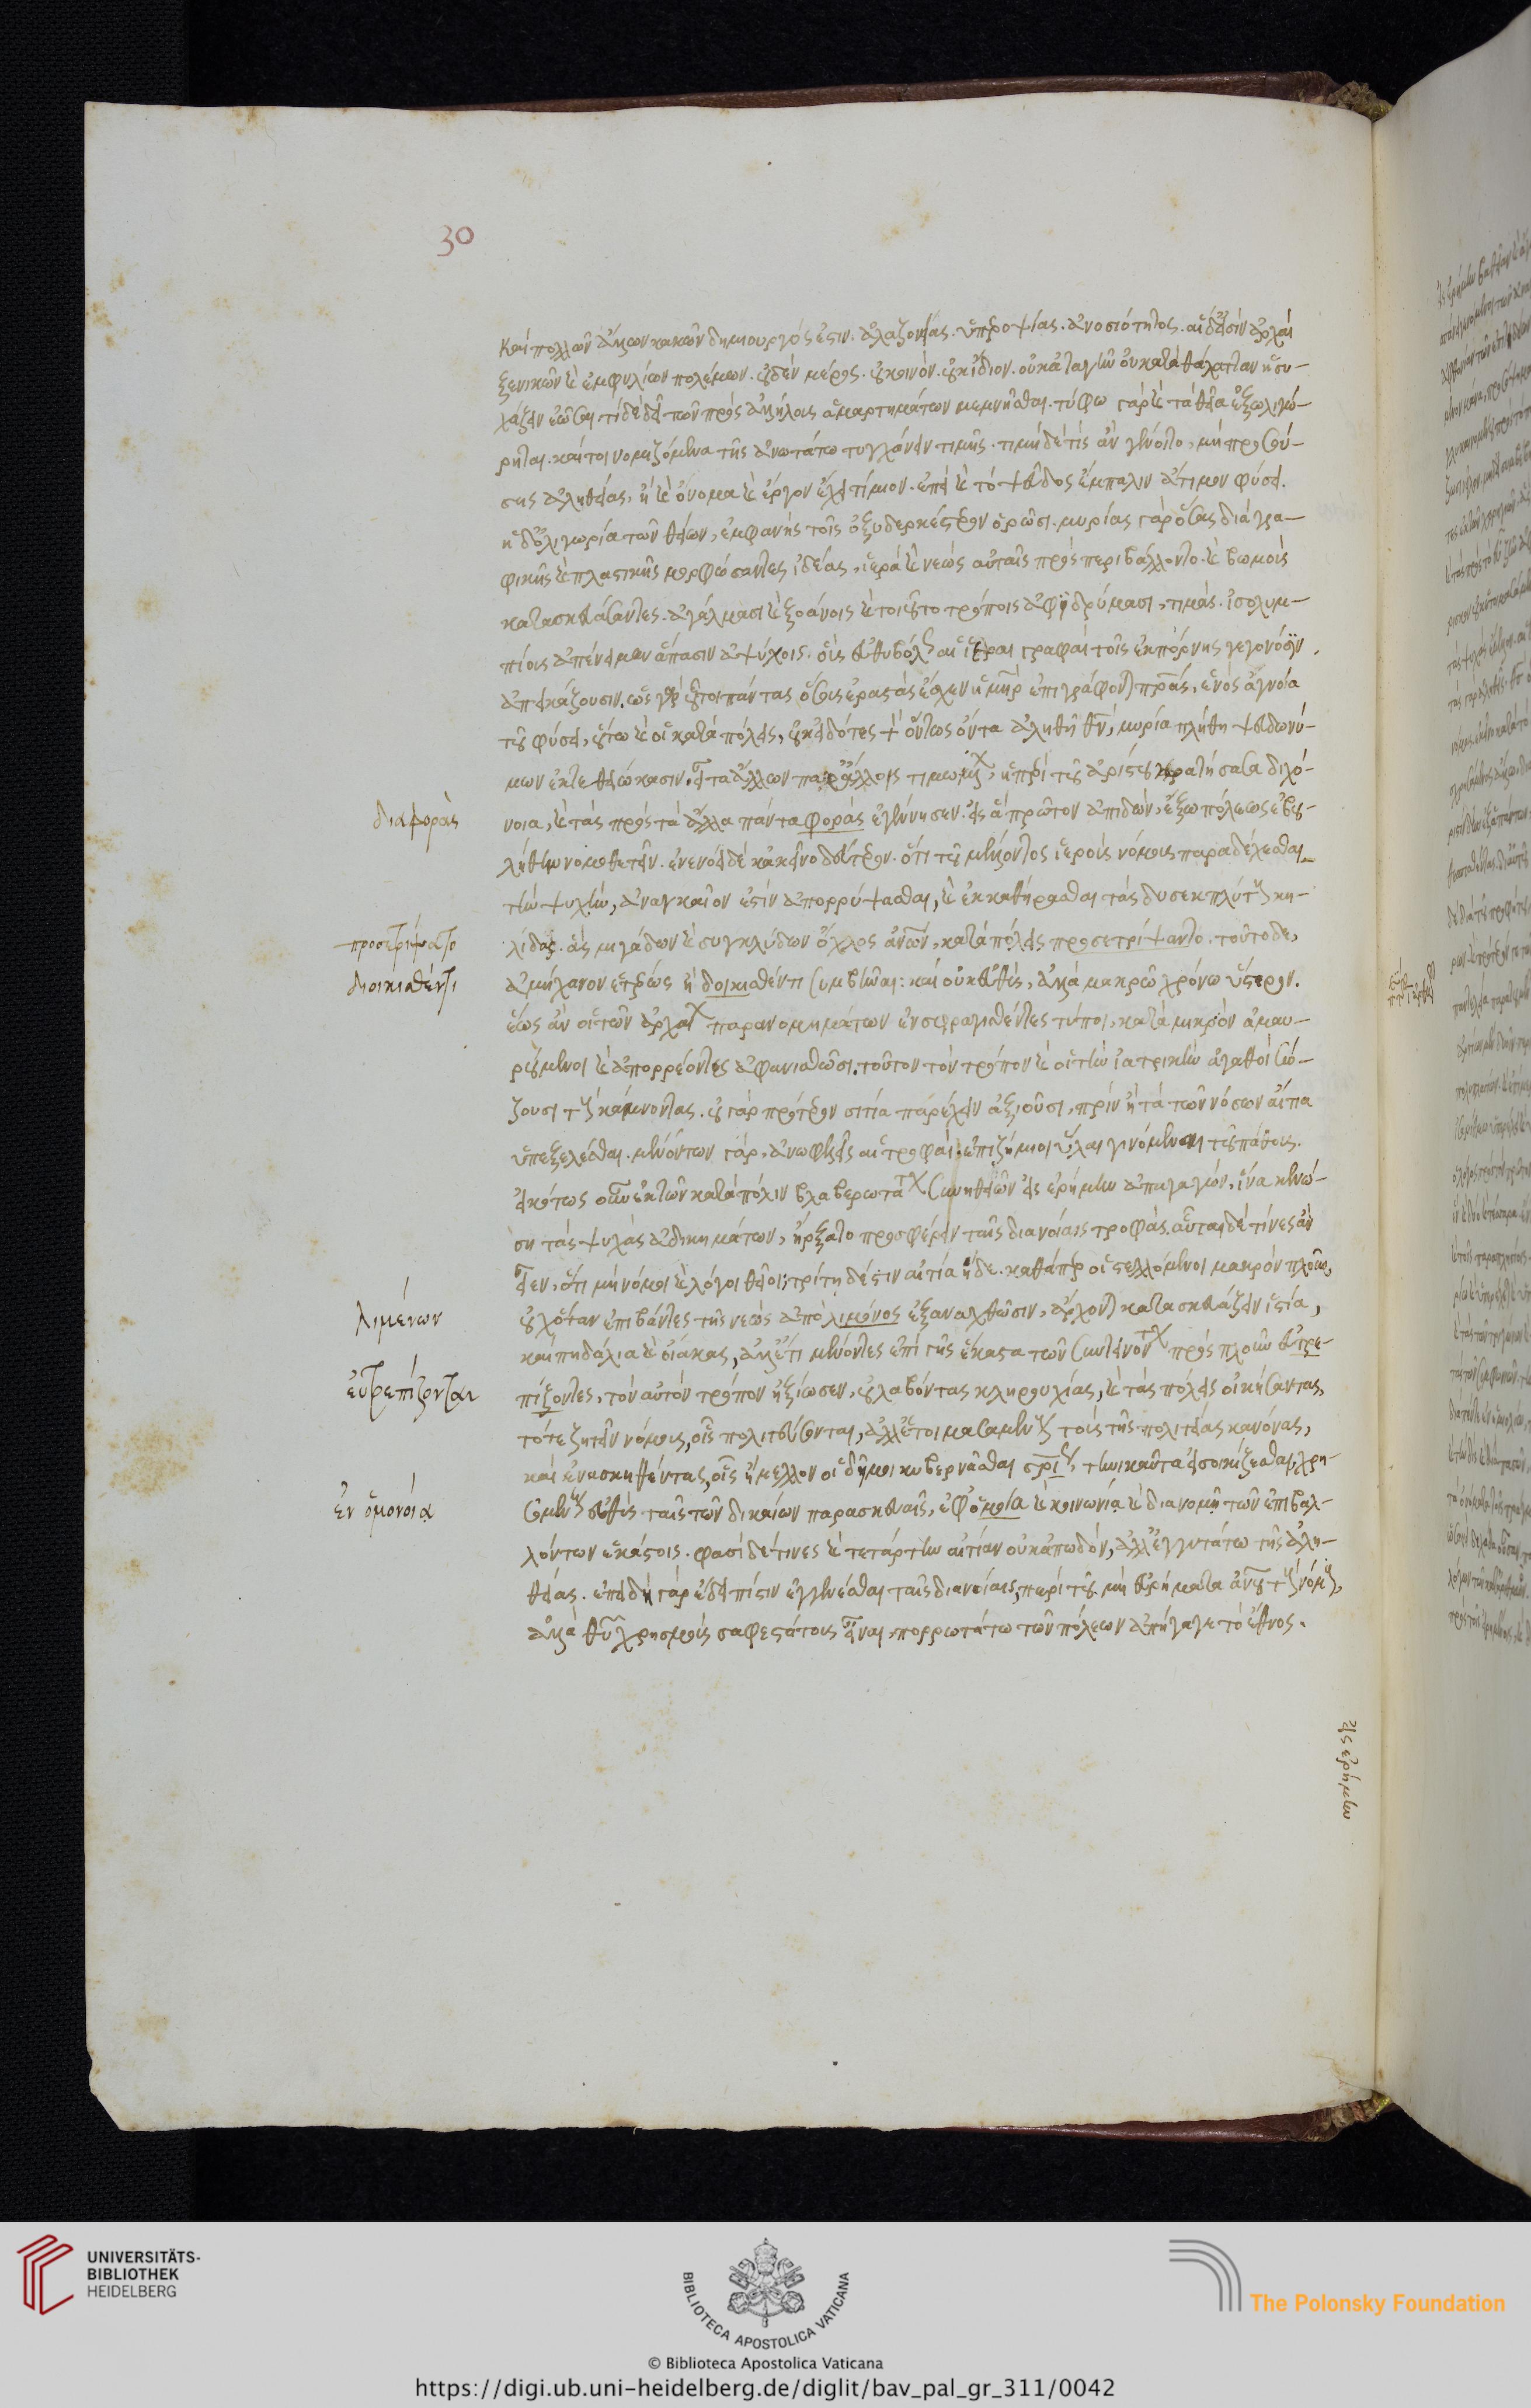 30
καὶ πολλῶν ἄλλων κακῶν δημιουργός ἐστιν. ἀλαζονείας. ὑπεροψίας. ἀνοσιότητος. αἱ δ' εἰσὶν ἀρχαὶ
ξενικῶν καὶ ἐμφυλίων πολέμων. οὐδὲν μέρος. οὐ κοινὸν. οὐκ ἴδιον. οὐ κατὰ γῆν οὐ κατὰ θάλατταν ἡσυ-
χάζειν ἐῶσαι. τί δὲ δεῖ τῶν πρὸς ἀλλήλους ἁμαρτημάτων μεμνῆσθαι. τύφω γὰρ καὶ τὰ θεῖα ἐξωλιγώ-
ρηται. καίτοι νομιζόμενα τῆς ἀνωτάτω τυγχάνειν τιμῆς. τιμὴ δὲ τίς ἂν γένοιτο, μὴ προσού-
σης ἀληθείας, ἣ καὶ ὄνομα καὶ ἔργον ἔχει τίμιον. ἐπεὶ καὶ τὸ ψεῦδος ἔμπαλιν ἄτιμον φύσει.
ἡ δ' ὀλιγωρία τῶν θείων, ἐμφανὴς τοῖς ὀξυδερκέστερον ὁρῶσι. μυρίας γὰρ ὅσας διὰ γρα-
φικῆς καὶ πλαστικῆς μορφώσαντες ἰδέας, ἱερὰ καὶ νεὼς αὐταῖς προσπεριβάλλοντο. καὶ βωμοὺς
κατασκευάσαντες. ἀγάλμασι καὶ ξοάνοις καὶ τοιουτοτρόποις ἀφϊδρύμασι, τιμὰς. ἰσολυμ-
πίους ἀπένειμαν ἅπασιν ἀψύχοις. οὓς εὐθυβόλως αἱ ἱεραὶ γραφαὶ τοῖς ἐκ πόρνης γεγονόσϊν
ἀπεικάζουσιν. ὡς γὰρ οὗτοι πάντας ὅσους ἐραστὰς ἔσχεν ἡ μηρ ἐπιγράφονται πρας, ἑνὸς ἀγνοία
τοῦ φύσει, οὕτω καὶ οἱ κατὰ πόλεις, οὐκ εἰδότες τὸν ὄντως ὄντα ἀληθῆ θν, μυρία πλήθη ψευδωνύ-
μων ἐκτεθειώκασιν. εἶτα ἄλλων παρ' ἄλλοις τιμωμένων, ἡ περὶ τοῦ ἀρίστου κρατήσασα διχό-
νοια, καὶ τὰς πρὸς τὰ ἄλλα πάντα φορὰς ἐγέννησεν. εἰς ἃ πρῶτον ἀπιδὼν, ἔξω πόλεως ἐβου-
λήθη νομοθετεῖν. ἐνενόει δὲ κἀκεῖνο δεύτερον. ὅτι τοῦ μέλλοντος ἱεροὺς νόμους παραδέχεσθαι
τὴν ψυχὴν, ἀναγκαῖον ἐστὶν ἀπορρύψασθαι, καὶ ἐκκαθήρασθαι τὰς δυσεκπλύτους κη-
λίδας. ἃς μιγάδων καὶ συγκλύδων ὄχλος ἀνων, κατὰ πόλεις προσετρίψαντο. τοῦτο δε,
ἀμήχανον ἑτέρως ἢ δοικισθέντι συμβῆναι: καὶ οὐκ εὐθὺς, ἀλλὰ μακρῷ χρόνω ὕστερον.
ἕως ἂν οἱ τῶν ἀρχαίων παρανομημάτων ἐνσφραγισθέντες τύποι, κατὰ μικρὸν ἀμαυ-
ρούμενοι καὶ ἀπορρέοντες ἀφανισθῶσι. τοῦτον τὸν τρόπον καὶ οἱ τὴν ἰατρικὴν ἀγαθοὶ σώ-
ζουσι τοὺς κάμνοντας. οὐ γὰρ πρότερον σιτία παρέχειν ἀξιοῦσι, πρὶν ἢ τὰ τῶν νόσων αἴτια
ὑπεξελέσθαι. μενόντων γὰρ, ἀνωφελεῖς αἱ τροφαὶ. ἐπιζήμιοι ὗλαι γινόμεναι τοῦ πάθους.
εἰκότως οὖν ἐκ τῶν κατὰ πόλιν βλαβερωτάτων συνηθειῶν εἰς ἐρήμην ἀπαγαγὼν, ἵνα κενώ-
ση τὰς ψυχὰς ἀδικημάτων, ἤρξατο προσφέρειν ταῖς διανοίαις τροφὰς. αὗται δὲ τίνες ἂν
εἶεν, ὅτι μὴ νόμοι καὶ λόγοι θεῖοι; τρίτη δ' ἐστιν αἰτία ἥδε. καθάπερ οἱ στελλόμενοι μακρὸν πλοῦν,
οὐχ ὅταν ἐπιβάντες τῆς νεὼς ἀπὸ λιμόνος ἐξαναχθῶσιν, ἄρχονται κατασκευάζειν ἱστία,
καὶ πηδάλια καὶ οἴακας, ἀλλ' ἔτι μένοντες ἐπὶ γῆς ἕκαστα τῶν συντεινόντων πρὸς πλοῦν εὐτρε-
πίζοντες, τὸν αὐτὸν τρόπον ἠξίωσεν, οὐ λαβόντας κληρουχίας, καὶ τὰς πόλεις οἰκήσαντας,
τότε ζητεῖν νόμους, οἷς πολιτεύσονται, ἀλλ' ἑτοιμασαμένους τοὺς τῆς πολιτείας κανόνας,
καὶ ἐνασκηθέντας, οἷς ἤμελλον οἱ δῆμοι κυβερνᾶσθαι σρίως, τηνικαῦτα εἰσοικίζεσθαι, χρη-
σομένους εὐθὺς ταῖς τῶν δικαίων παρασκευαῖς, ἐφ' ὁμοία καὶ κοινωνία καὶ διανομῇ τῶν ἐπιβαλ-
λόντων ἑκάστοις. φασὶ δέ τινες καὶ τετάρτην αἰτίαν οὐκ ἀπωδὸν, ἀλλ' ἐγγυτάτω τῆς ἀλη-
θείας. ἐπειδὴ γὰρ ἔδει πίστιν ἐγγενέσθαι ταῖς διανοίαις, περὶ τοῦ μὴ εὑρήματα ἀνου τοὺς νόμους,
ἀλλὰ θυ χρησμοὺς σαφεστάτους εἶναι, πορρωτάτω τῶν πόλεων ἀπήγαγε τὸ ἔθνος.
διαφορὰς
προσετρίψατο
διοικισθέντι
λιμένων
εὐτρεπίζονται
ἐν ὁμονοία
εἰς ἐρήμην
UNIVERSITÄTS-
BIBLIOTHEK
HEIDELBERG
BIBLIOTECA APOSTOLICA VATICANA
The Polonsky Foundation
© Biblioteca Apostolica Vaticana
https://digi.ub.uni-heidelberg.de/diglit/bav_pal_gr_311/0042